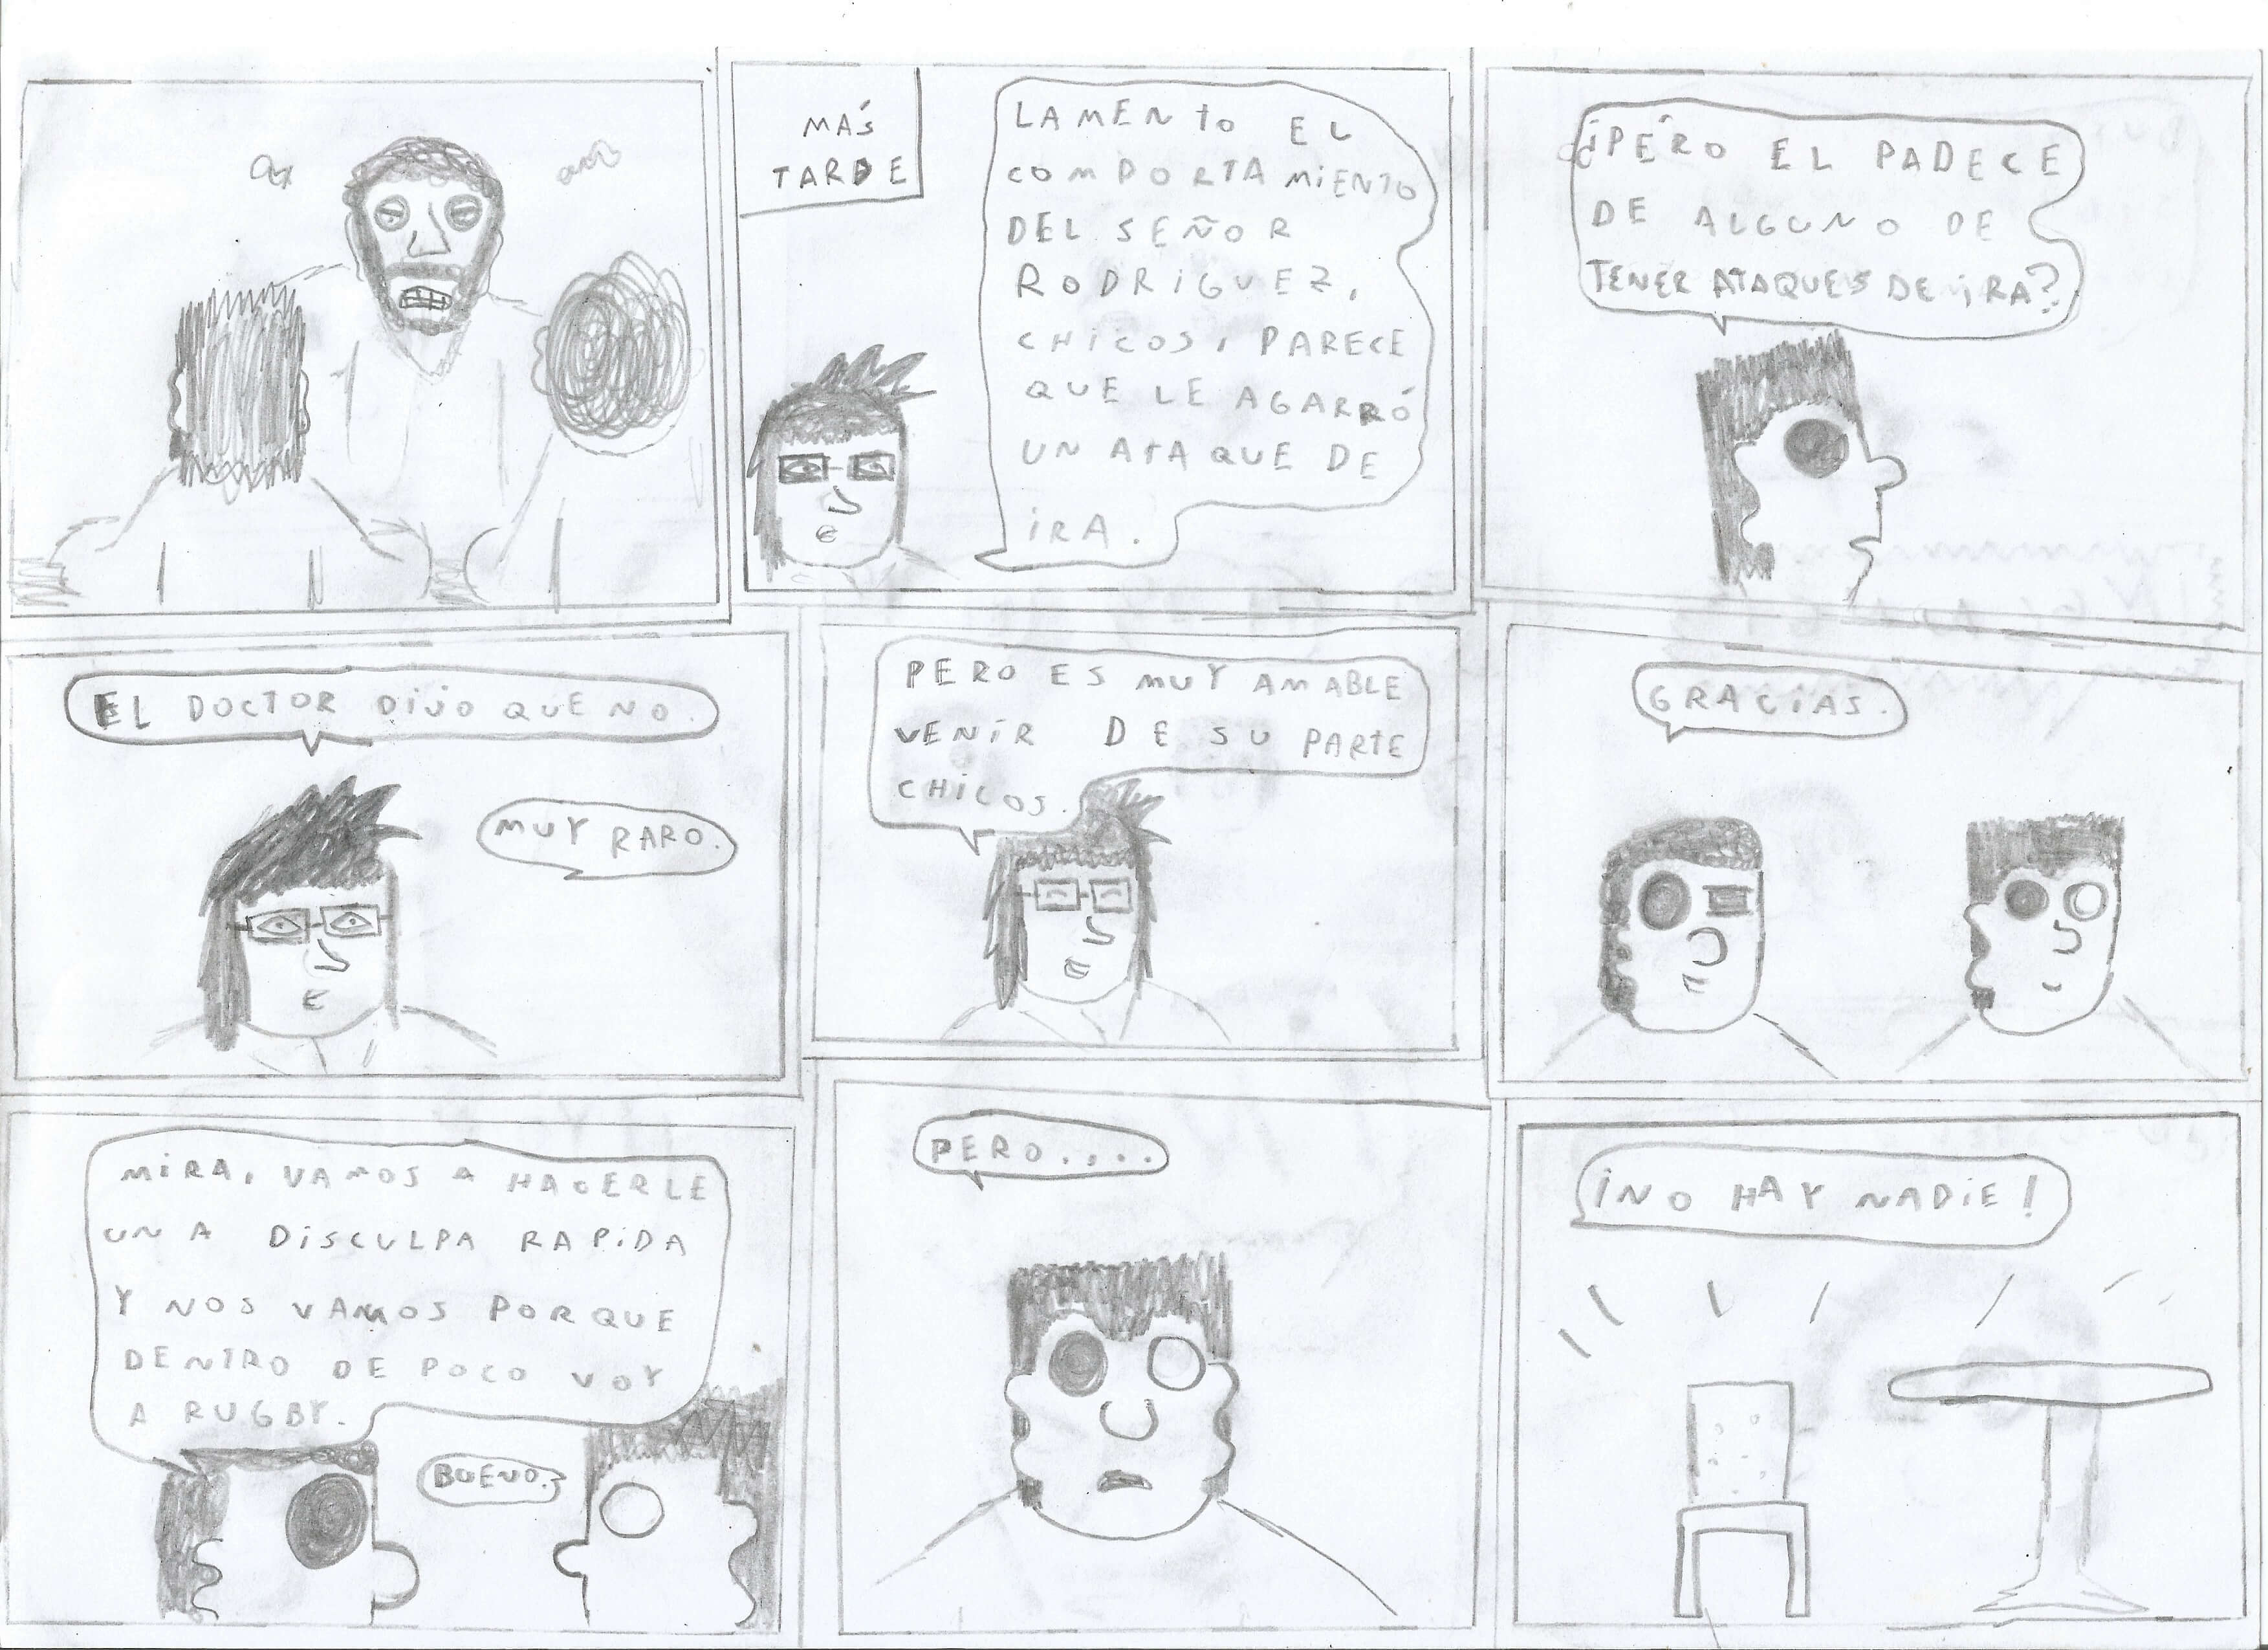 MÁS
TARDE
LAMENTO EL
COMPORTAMIENTO
DEL SEÑOR
RODRIGUEZ,
CHICOS, PARECE
QUE LE AGARRÓ
UN ATAQUE DE
IRA.
¿PERO EL PADECE
DE ALGUNO DE
TENER ATAQUES DE IRA?
EL DOCTOR DIJO QUE NO.
MUY RARO.
PERO ES MUY AMABLE
VENIR DE SU PARTE
CHICOS.
GRACIAS.
MIRA, VAMOS A HACERLE
UNA DISCULPA RAPIDA
Y NOS VAMOS PORQUE
DENTRO DE POCO VOY
A RUGBY.
BUENO.
PERO....
¡NO HAY NADIE!